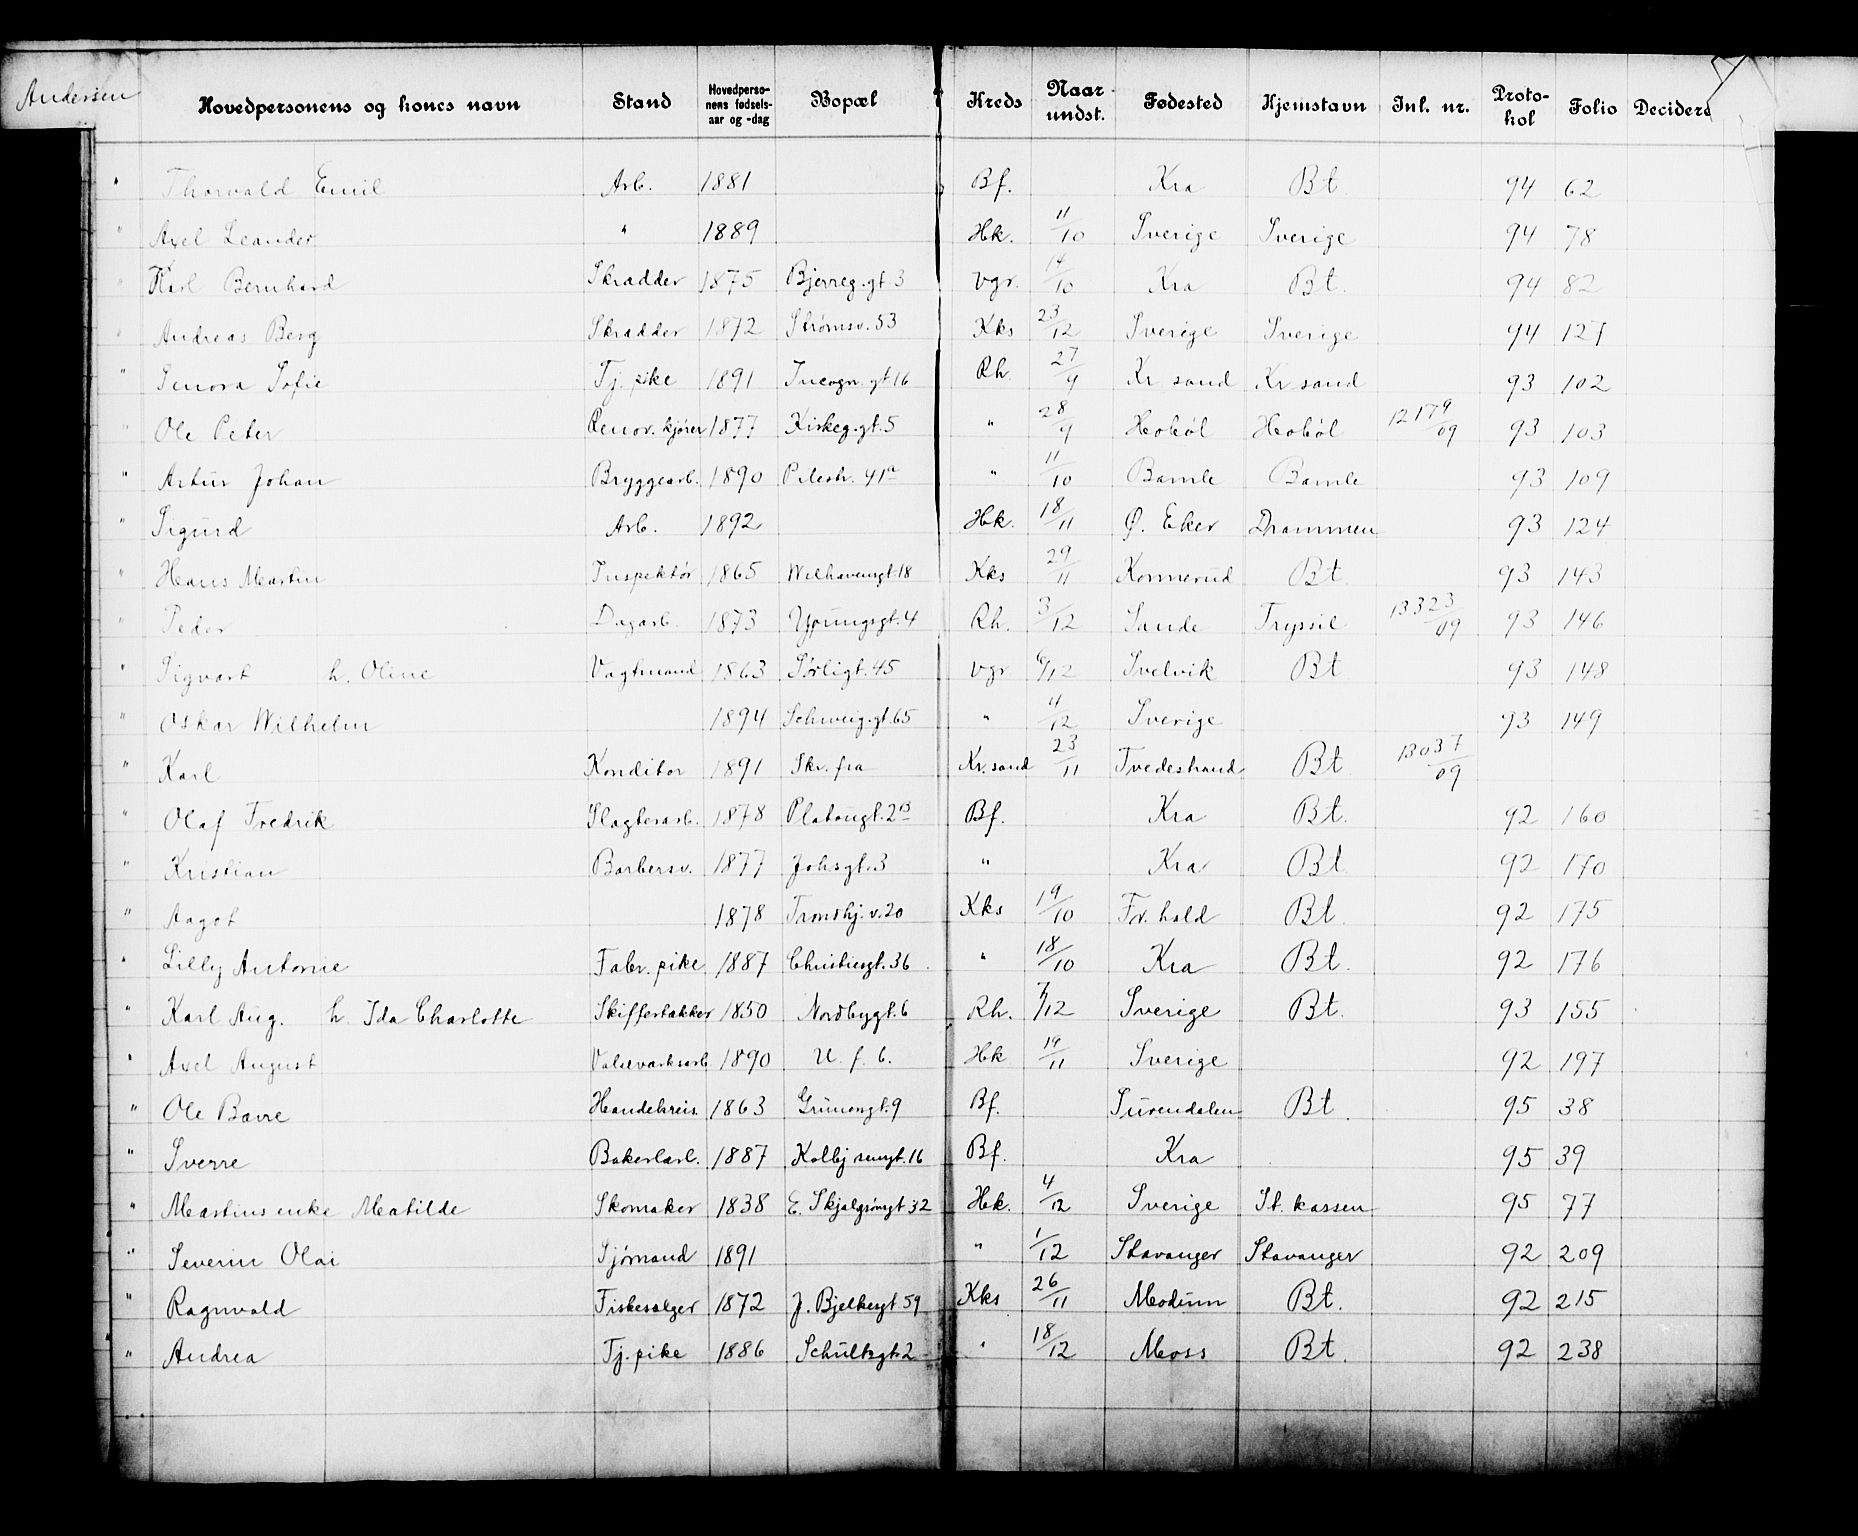 Andersen
Hovedpersonens og hones navn Stand Hovedperso-nens fødsels-aar og -dag Bopæl Kreds Naar undst. Fødested Hjemstavn Inl. nr. Proto-kol Folio Decidere
" Thorvald Emil Arb. 1881 Bf. Kra Bt. 94 62
" Axel Leander " 1889 Hk. 11/10 Sverige Sverige 94 78
" Karl Bernhard Skrædder 1875 Bjerreg.gt 3 Vgr. 14/10 Kra Bt. 94 82
" Andreas Berg Skrædder 1872 Strømsv. 53 Kks 23/12 Sverige Sverige 94 127
" Senora Sofie Tj. pike 1891 Incogn. gt 16 Rh. 27/9 Kr sand Kr sand 93 102
" Ole Peter Renov. kjører 1877 Kirkeg. gt. 5 " 28/9 Hobøl Hobøl 12179/09 93 103
" Artur Johan Bryggearb. 1890 Pilestr. 41a " 11/10 Bamle Bamle 93 109
" Sigurd Arb. 1892 Hk. 18/11 Ø. Eker Drammen 93 124
" Hans Martin Inspektør 1865 Welhavensgt 18 Kks 29/11 Konnerud Bt. 93 143
" Peder Dagarb. 1873 Youngsgt. 4 Rh. 3/12 Sande Trysil 13323/09 93 146
" Sigvart h. Oline Vagtmand 1863 Sørligt. 45 Vgr 6/12 Svelvik Bt 93 148
" Oskar Wilhelm 1894 Schweig. gt. 65 " 4/12 Sverige 93 149
" Karl Konditor 1891 Skr. fra Kr. sand 23/11 Tvedestrand Bt. 13037/09
" Olaf Fredrik Slagterarb. 1878 Platougt. 2B Bf. Kra Bt. 92 160
" Kristian Barbersv. 1877 Johsgt. 3 " Kra Bt. 92 170
" Aagot 1878 Tromshj. v. 20 Kks 19/10 Fr. hald Bt. 92 175
" Lilly Antonie Fabr. pike 1887 Christiesgt. 36 " 18/10 Kra Bt. 92 176
" Karl Aug. h. Ida Charlotte Skiffertækker 1850 Nordbygt. 6 Rh. 7/12 Sverige Bt. 93 155
" Axel August Valseværksarb 1890 U. f. b. Hk 19/11 Sverige 92 197
" Ole Bavre Handelsreis. 1863 Grünersgt. 9 Bf. Surendalen Bt. 95 38
" Sverre Bakerlærl. 1887 Kolbjørnsgt. 16 Bf. Kra 95 39
" Martins enke Matilde Skomaker 1838 E. Skjalgsønsgt 32 Hk. 4/12 Sverige St. kassen 95 77
" Severin Olai Sjømand 1891 " 1/12 Stavanger Stavanger 92 209
" Ragnvald Fiskesælger 1872 J. Bjelkesgt 59 Kks 26/11 Modum Bt. 92 215
" Andrea Tj. pike 1886 Schultzgt. 2 " 18/12 Moss Bt. 92 238